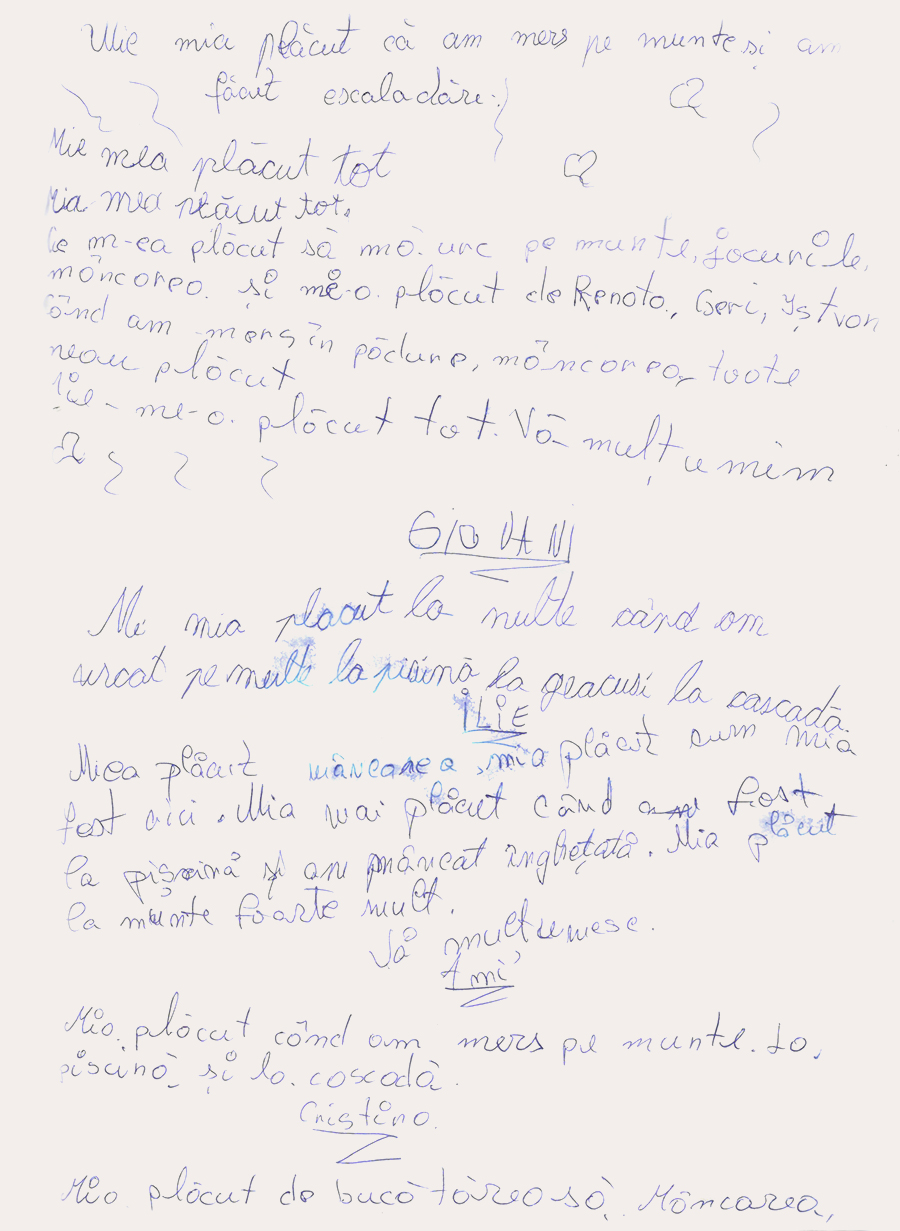 Mie mia plăcut că am mers pe munte și am
făcut escaladări.
Mie mea plăcut tot
Mia mea plăcut tot.
m-ea plăcut să mă urc pe munte, jocurile,
mâncarea și me-a plăcut de Renato, Geri, Iștvan
Când am mers în pădure, mâncarea, toate
neau plăcut
Mie-me-a plăcut tot. Vă mulțumim
GIOVANI
Mi mia placut la multe când am
urcat pe multe la pisină la geacusi la cascadă.
ILIE
Miea plăcut mâncarea, mia plăcut cum mia
fost aici. Mia mai plăcut când am fost
la pișcină și am mâncat înghețată. Mia plăcut
la munte foarte mult.
Vă multumesc.
Ami
Mia plăcut când am mers pe munte. La,
piscină, și la cascadă.
Cristina.
Mia plăcut de bucătăreasă, Mâncarea,